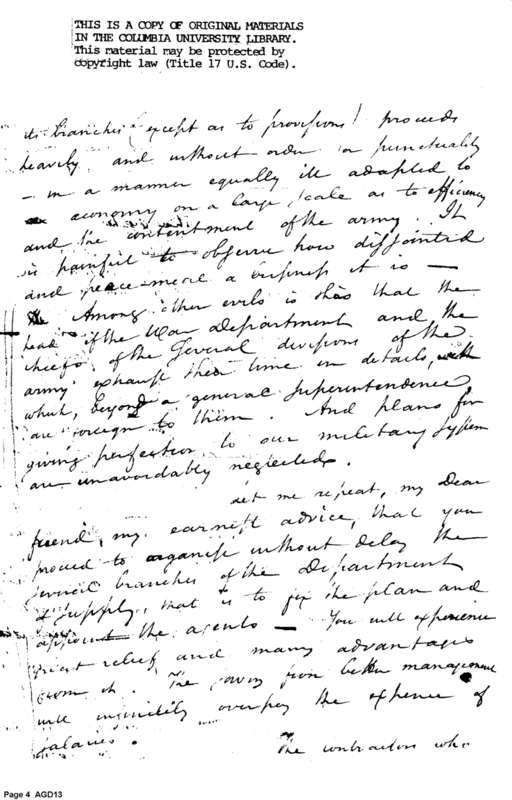 THIS IS A COPY OF ORIGINAL MATERIALS
IN THE COLUMBIA UNIVERSITY LIBRARY.
This material may be protected by
copyright law (Title 17 U.S. Code).
its branches (except as to provisions) proceeds
heavily and without order or punctuality
– in a manner equally ill adapted to
economy on a large scale as to efficiency
and the contentment of the army. It
is painful to observe how disjointed
and peace-meal a business it is —
Among other evils is this that the
head of the War Department and the
chiefs of the several divisions of the
army exhaust their time in details, with
which, beyond a general superintendence,
are foreign to them. And plans for
giving perfection to our military system
are unavoidably neglected.
Let me repeat, my Dear
friend, my earnest advice, that you
proceed to organise without delay the
several branches of the Department
of Supply, that is to fix the plan and
appoint the agents — You will experience
great relief and many advantages
from it. The saving from better management
will infinitely overpay the expence of
salaries.
The contractors who
Page 4 AGD13